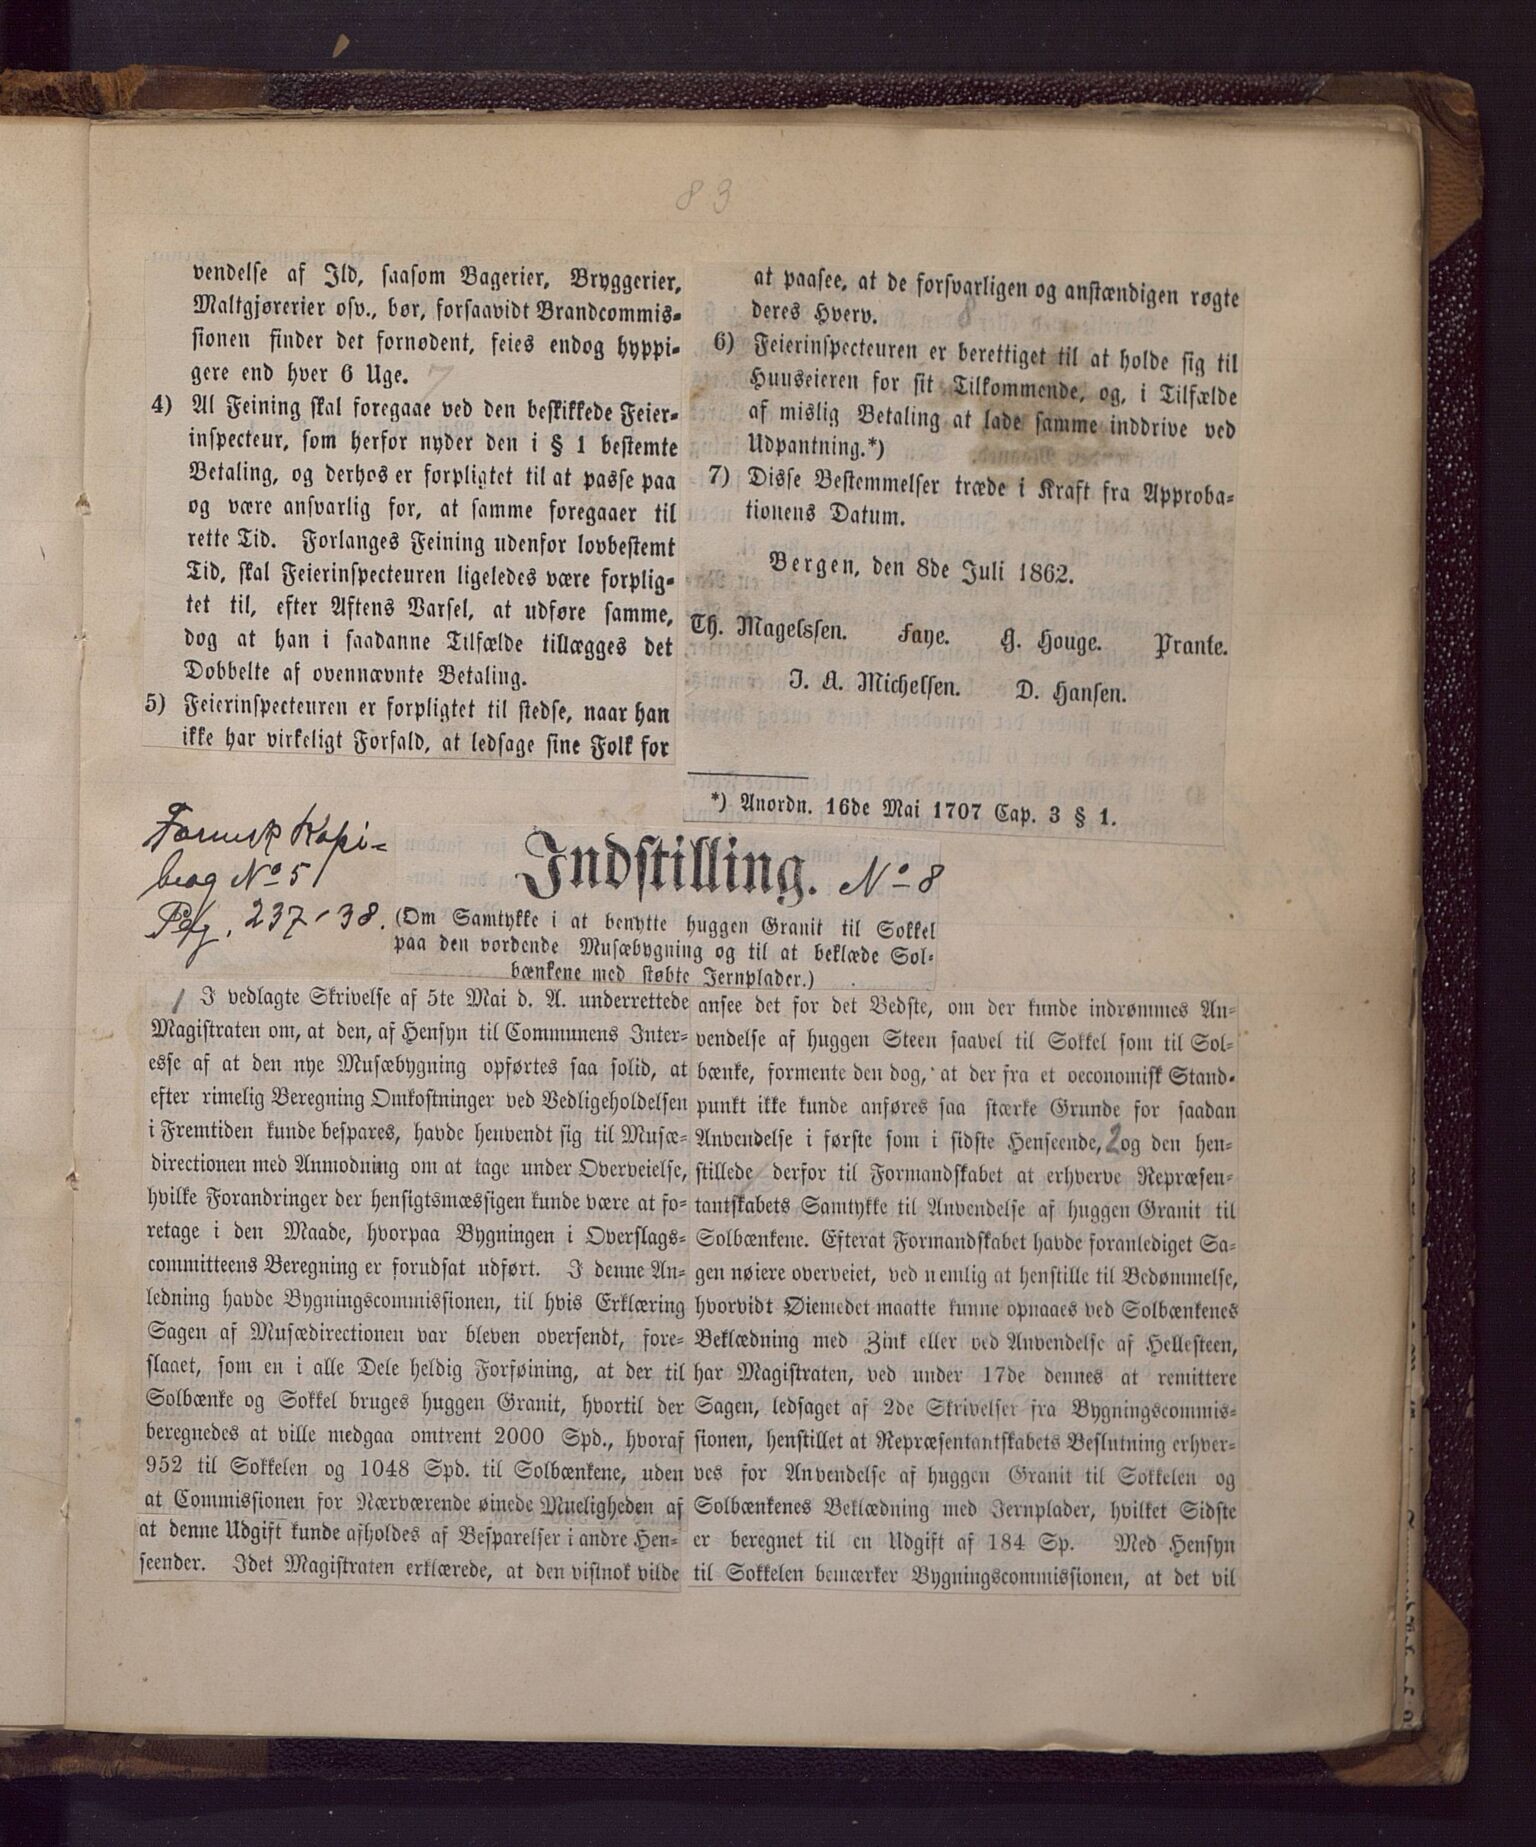 83
vendelse af Ild, saasom Bagerier, Bryggerier,
Maltgjørerier osv., bør, forsaavidt Brandcommis-
sionen finder det fornødent, feies endog hyppi-
gere end hver 6 Uge. 7
4) Al Feining skal foregaae ved den beskikkede Feier-
inspecteur, som herfor nyder den i § 1 bestemte
Betaling, og derhos er forpligtet til at passe paa
og være ansvarlig for, at samme foregaaer til
rette Tid. Forlanges Feining udenfor lovbestemt
Tid, skal Feierinspecteuren ligeledes være forplig-
tet til, efter Aftens Varsel, at udføre samme,
dog at han i saadanne Tilfælde tillægges det
Dobbelte af ovennævnte Betaling.
5) Feierinspecteuren er forpligtet til stedse, naar han
ikke har virkeligt Forfald, at ledsage sine Folk for
at paasee, at de forsvarligen og anstændigen røgte
deres Hverv. 8
6) Feierinspecteuren er berettiget til at holde sig til
Huuseieren for sit Tilkommende, og, i Tilfælde
af mislig Betaling at lade samme inddrive ved
Udpantning.*)
7) Disse Bestemmelser træde i Kraft fra Approba-
tionens Datum.
Bergen, den 8de Juli 1862.
Th. Magelssen. Faye. G. Houge. Prante.
J. A. Michelsen. D. Hansen.
*) Anordn. 16de Mai 1707 Cap. 3 § 1.
Formsk Kopi-
bog No 5
Pag. 237-38.
Indstilling. No 8
(Om Samtykke i at benytte huggen Granit til Sokkel
paa den vordende Musæbygning og til at beklæde Sol-
bænkene med støbte Jernplader.)
I vedlagte Skrivelse af 5te Mai d. A. underrettede
Magistraten om, at den, af Hensyn til Communens Inter-
esse af at den nye Musæbygning opførtes saa solid, at
efter rimelig Beregning Omkostninger ved Vedligeholdelsen
i Fremtiden kunde bespares, havde henvendt sig til Musæ-
directionen med Anmodning om at tage under Overveielse,
hvilke Forandringer der hensigtsmæssigen kunde være at fo-
retage i den Maade, hvorpaa Bygningen i Overslags-
committeens Beregning er forudsat udført. I denne An-
ledning havde Bygningscommissionen, til hvis Erklæring
Sagen af Musædirectionen var bleven oversendt, fore-
slaaet, som en i alle Dele heldig Forføining, at der til
Solbænke og Sokkel bruges huggen Granit, hvortil der
beregnedes at ville medgaa omtrent 2000 Spd., hvoraf
952 til Sokkelen og 1048 Spd. til Solbænkene, uden
at Commissionen for Nærværende øinede Mueligheden af
at denne Udgift kunde afholdes af Besparelser i andre Hen-
seender. Idet Magistraten erklærede, at den vistnok vilde
ansee det for det Bedste, om der kunde indrømmes An-
vendelse af huggen Steen saavel til Sokkel som til Sol-
bænke, formente den dog, at der fra et oeconomisk Stand-
punkt ikke kunde anføres saa stærke Grunde for saadan
Anvendelse i første som i sidste Henseende, 2 og den hen-
stillede derfor til Formandskabet at erhverve Repræsen-
tantskabets Samtykke til Anvendelse af huggen Granit til
Solbænkene. Efterat Formandskabet havde foranlediget Sa-
gen nøiere overveiet, ved nemlig at henstille til Bedømmelse,
hvorvidt Øiemedet maatte kunne opnaaes ved Solbænkenes
Beklædning med Zink eller ved Anvendelse af Hellesteen,
har Magistraten, ved under 17de dennes at remittere
Sagen, ledsaget af 2de Skrivelser fra Bygningscommis-
sionen, henstillet at Repræsentantskabets Beslutning erhver-
ves for Anvendelse af huggen Granit til Sokkelen og
Solbænkenes Beklædning med Jernplader, hvilket Sidste
er beregnet til en Udgift af 184 Sp. Med Hensyn
til Sokkelen bemærker Bygningscommissionen, at det vil